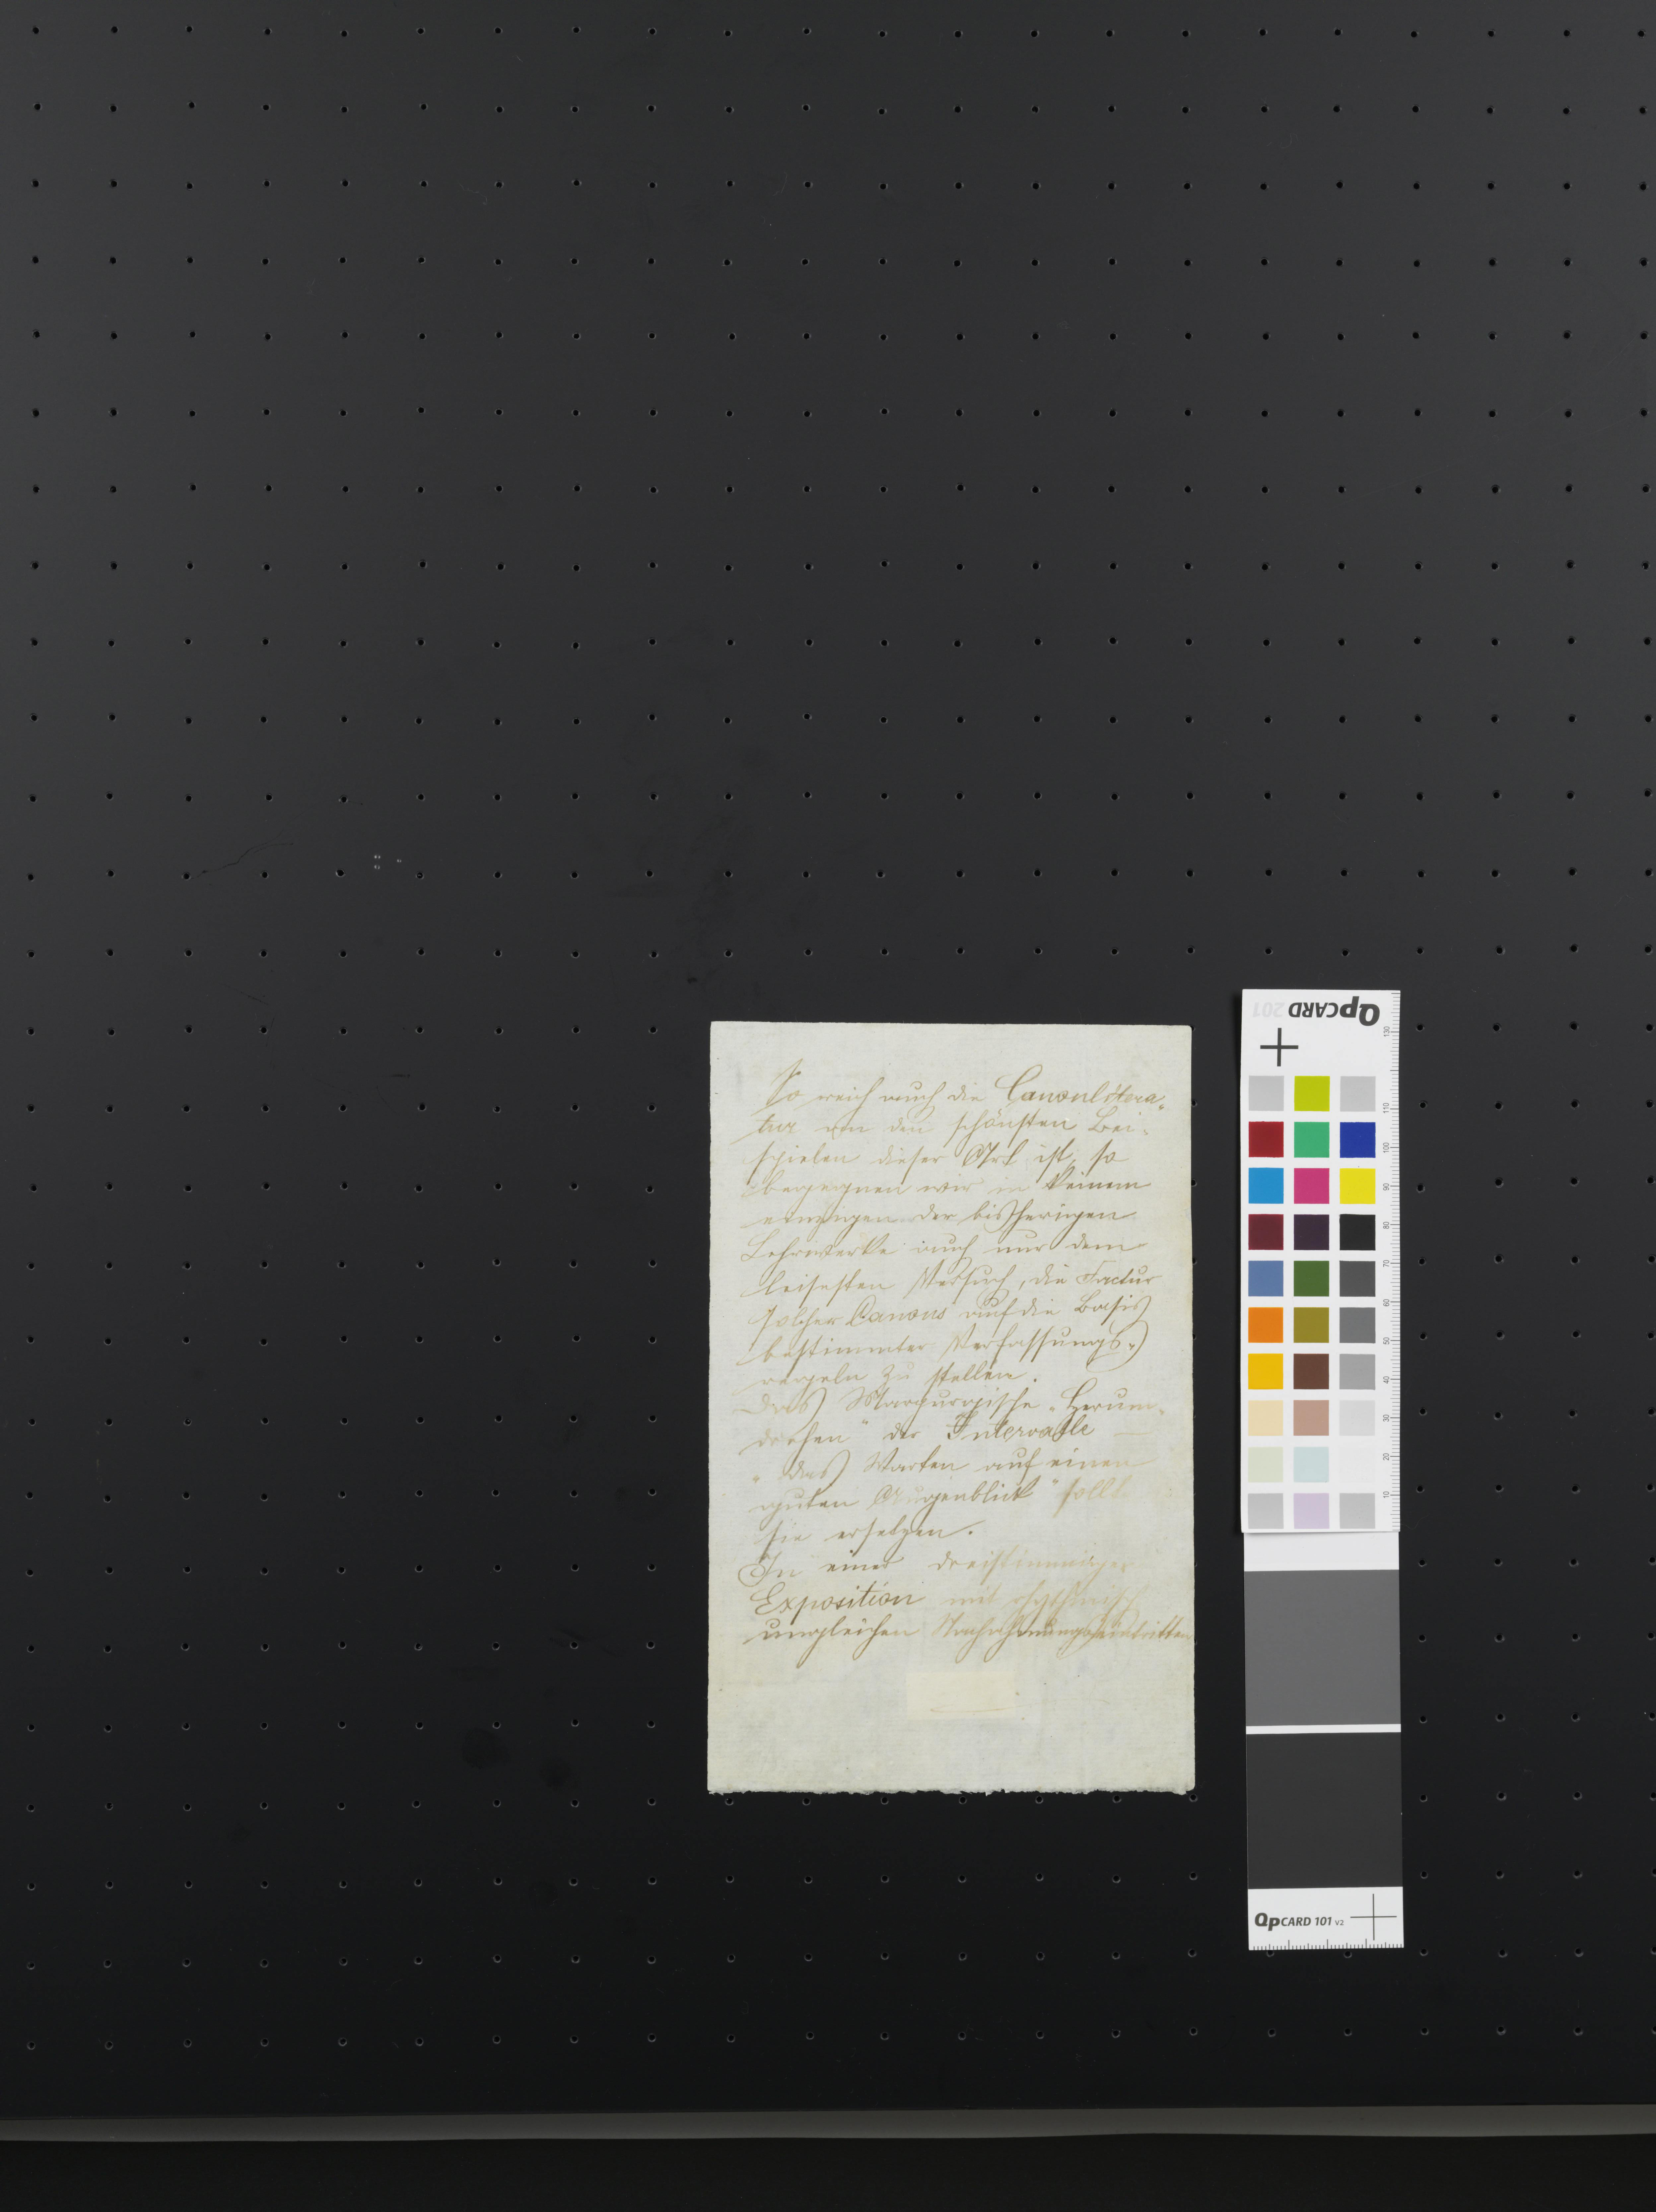 So reich auch die Canonlitera„
tur an den schönsten Bei„
spielen dieser Art ist, so
begegnen wir in keinem
einzigen der bisherigen
Lehrwerke auch nur dem
leisesten Versuch, die Factur
solcher Canons auf die Basis
bestimmter Verfassungs„
regeln zu stellen.
Das Marpurgische „Herum„
drehen" der Intervalle —
„das Warten auf einen
guten Augenblick" sollt
sie ersetzen.
In einer dreistimmigen
Exposition mit rhythmisch
ungleichen Nachahmungseintritten
QpCARD 201
130
110
100
90
80
70
60
50
40
30
20
10
QpCARD 101 v2